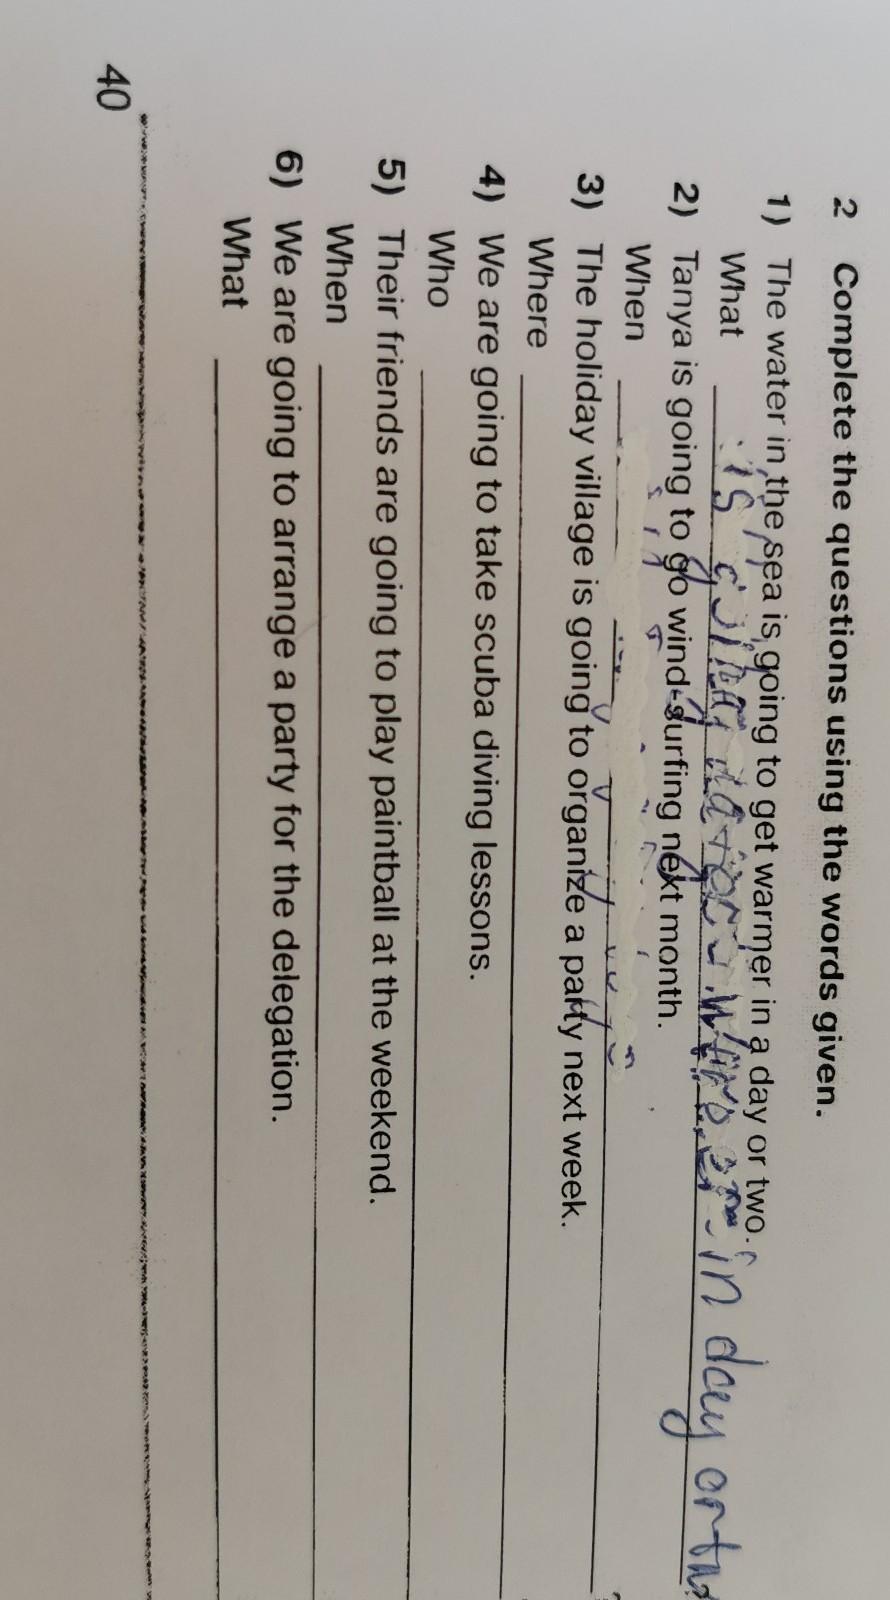 2 Complete the questions using the words given.
1) The water in the sea is going to get warmer in a day or two.
What is going in day or
2) Tanya is going to go wind-surfing next month.
When
3) The holiday village is going to organize a party next week.
Where
4) We are going to take scuba diving lessons.
Who
5) Their friends are going to play paintball at the weekend.
When
6) We are going to arrange a party for the delegation.
What
40